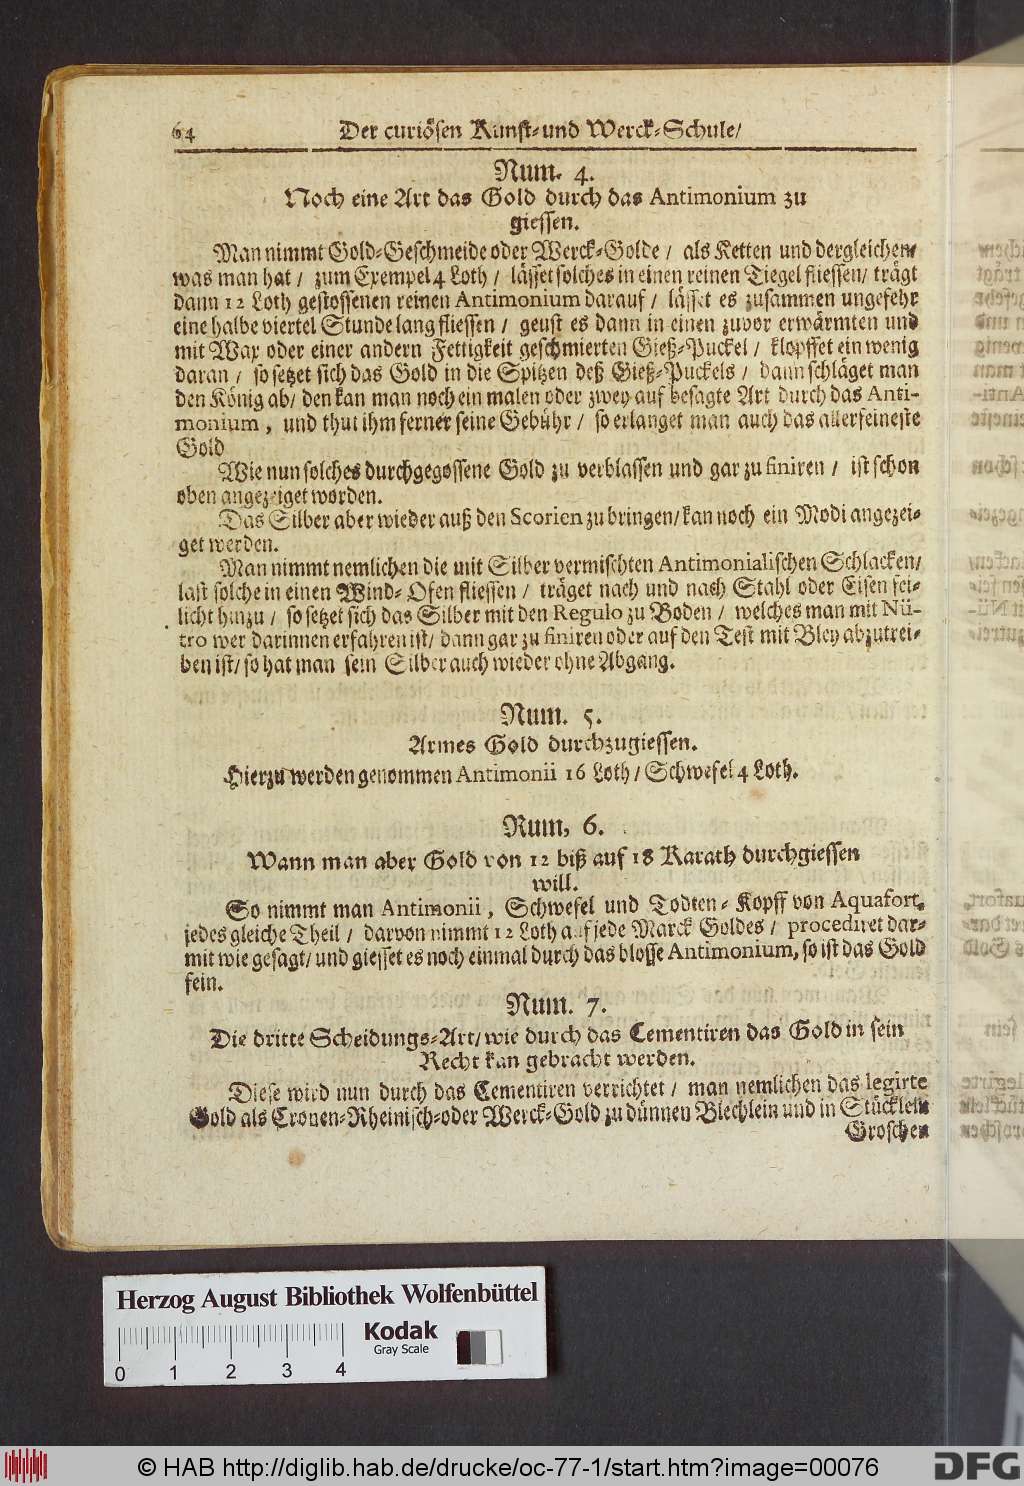 64 Der curiösen Kunst-und Werck-Schule/
Num. 4.
Noch eine Art das Gold durch das Antimonium zu
giessen.
Man nimmt Gold-Geschmeide oder Werck-Golde / als Ketten und dergleichen/
was man hat / zum Exempel 4 Loth / lässet solches in einen reinen Tiegel fliessen/ trägt
dann 12 Loth gestossenen reinen Antimonium darauf / lässet es zusammen ungefehr
eine halbe viertel Stunde lang fliessen / geust es dann in einen zuvor erwärmten und
mit Wax oder einer andern Fettigkeit geschmierten Gieß-Puckel / klopffet ein wenig
daran / so setzet sich das Gold in die Spitzen deß Gieß-Puckels / dann schläget man
den König ab/ den kan man noch ein malen oder zwey auf besagte Art durch das Anti-
monium, und thut ihm ferner seine Gebühr / so erlanget man auch das allerfeineste
Gold
Wie nun solches durchgegossene Gold zu verblassen und gar zu finiren / ist schon
oben angezeiget worden.
Das Silber aber wieder auß den Scorien zu bringen/ kan noch ein Modi angezei-
get werden.
Man nimmt nemlichen die mit Silber vermischten Antimonialischen Schlacken/
last solche in einen Wind-Ofen fliessen / träget nach und nach Stahl oder Eisen fei-
licht hinzu / so setzet sich das Silber mit den Regulo zu Boden / welches man mit Nü-
tro wer darinnen erfahren ist/ dann gar zu finiren oder auf den Test mit Bley abzutrei-
ben ist/ so hat man sein Silber auch wieder ohne Abgang.
Num. 5.
Armes Gold durchzugiessen.
Hierzu werden genommen Antimonii 16 Loth / Schwefel 4 Loth.
Num, 6.
Wann man aber Gold von 12 biß auf 18 Karath durchgiessen
will.
So nimmt man Antimonii, Schwefel und Todten-Kopff von Aquafort,
jedes gleiche Theil / darvon nimmt 12 Loth auf jede Marck Goldes / procediret dar-
mit wie gesagt/ und giesset es noch einmal durch das blosse Antimonium, so ist das Gold
fein.
Num. 7.
Die dritte Scheidungs-Art/ wie durch das Cementiren das Gold in sein
Recht kan gebracht werden.
Diese wird nun durch das Cementiren verrichtet / man nemlichen das legirte
Gold als Cronen-Rheinisch-oder Werck-Gold zu dünnen Blechlein und in Stücklein
Groschen
Herzog August Bibliothek Wolfenbüttel
Kodak
Gray Scale
0 1 2 3 4
© HAB http://diglib.hab.de/drucke/oc-77-1/start.htm?image=00076
DFG